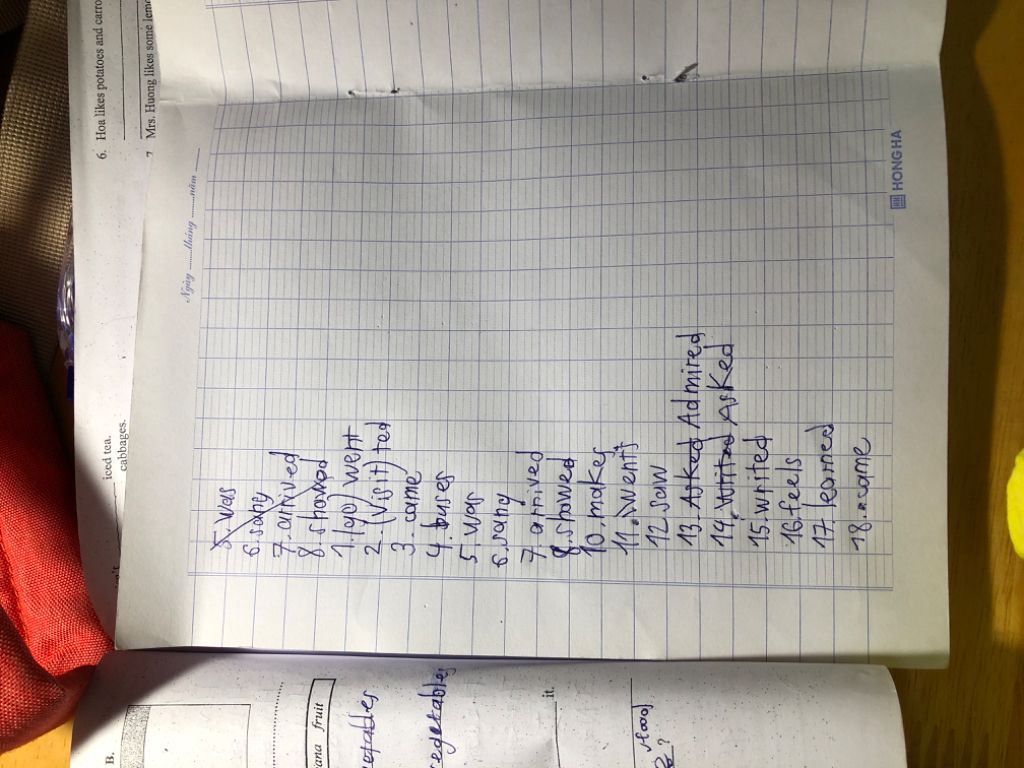 6. Hoa likes potatoes and carro
7 Mrs. Huong likes some lemo
iced tea.
cabbages.
Ngày ......tháng ......năm
5. was
6. sang
7. arrived
8. showed
1. (go) went
2. (visit) ted
3. came
4. buses
5. was
6. sang
7. arrived
8. showed
10. makes
11. went
12. saw
13. Asked Admired
14. writed Asked
15. writed
16. feels
17. learned
18. came
HONG HA
B.
ana fruit
vegetables
it.